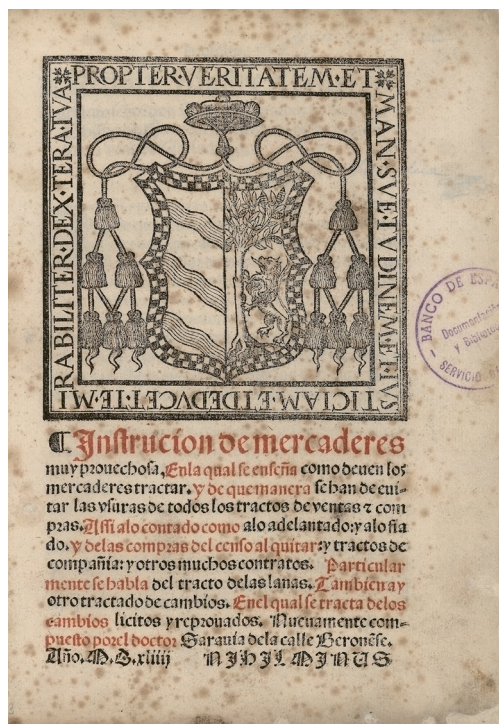 PROPTER·VERITATEM·ET·
MAN·SVE·TVDINEM·ET·IVS
TICIAM·ET·DEDVCET·TE·MI
RABILITER·DEX·TERA·TVA
BANCO DE ESPA
Documentación
y Biblioteca
SERVICIO
¶ Instrucion de mercaderes
muy prouechosa, En la qual se enseña como deuen los
mercaderes tractar. y de que manera se han de eui-
tar las vsuras de todos los tractos de ventas ⁊ com
pras. Assi alo contado como alo adelantado: y alo fia
do. y delas compras del censo al quitar: y tractos de
compañia: y otros muchos contratos. Particular
mente se habla del tracto delas lanas. Tambien ay
otro tractado de cambios. Enel qual se tracta delos
cambios licitos y reprouados. Nueuamente com-
puesto por el doctor Sarauia dela calle Beronẽse.
Año. M. D. xliiij NIHIL MINUS